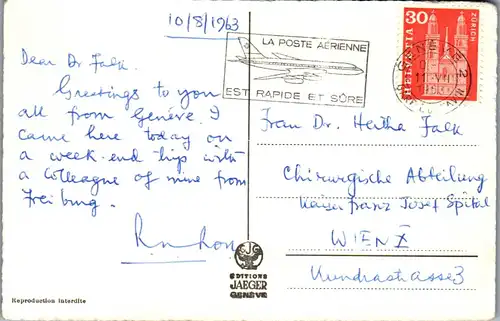 10/8/1963
LA POSTE AÉRIENNE
EST RAPIDE ET SÛRE
30
HELVETIA
ZÜRICH
GENÈVE 2
Dear Dr Falk,
Greetings to you
all from Genève. I
came here today on
a week-end trip with
a Colleague of mine from
Freiburg.
Frau Dr. Hertha Falk
Chirurgische Abteilung
Kaiser Franz Josef Spital
WIEN X
Kundratstrasse 3
EDITIONS
JAEGER
GENÈVE
Reproduction interdite